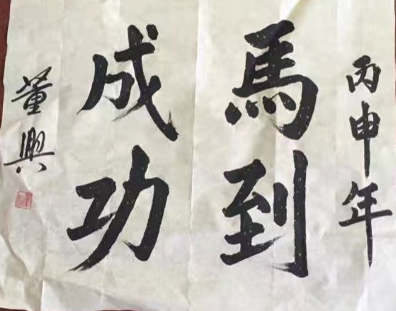 丙申年
馬到
成功
董興